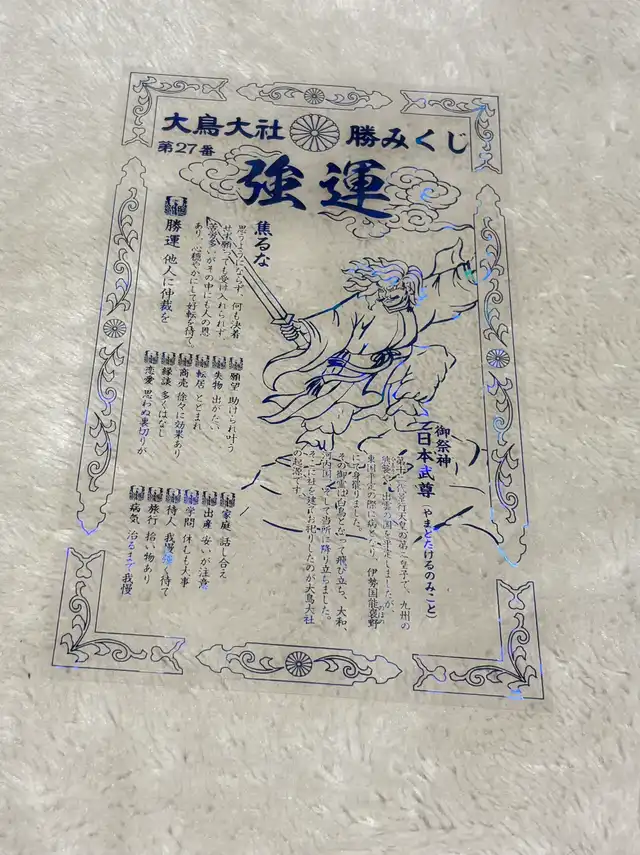 大鳥大社 勝みくじ
第27番
強運
焦るな
思うようにならず 何も決着
せず願つても受け入れられず
苦労多しがその中にも人の恩
あり 心穏やかにして好転を待て
勝運 他人に仲裁を
願望 助けられ叶う
失物 出がたい
転居 とどまれ
商売 徐々に効果あり
縁談 多くはなし
恋愛 思わぬ裏切りが
家庭 話し合え
出産 安いが注意
学問 休むも大事
待人 我慢強く待て
旅行 拾い物あり
病気 治るまで我慢
御祭神
日本武尊（やまとたけるのみこと）
第十二代景行天皇の第二皇子で、九州の
熊襲や、出雲の国を平定しましたが、
東国平定の際に病となり、伊勢国能褒野
のぼの
にて身罷りました。
その御霊は白鳥となって飛び立ち、大和、
河内国、そして当所に降り立ちました。
そこに社を建てお祀りしたのが大鳥大社
の起源です。